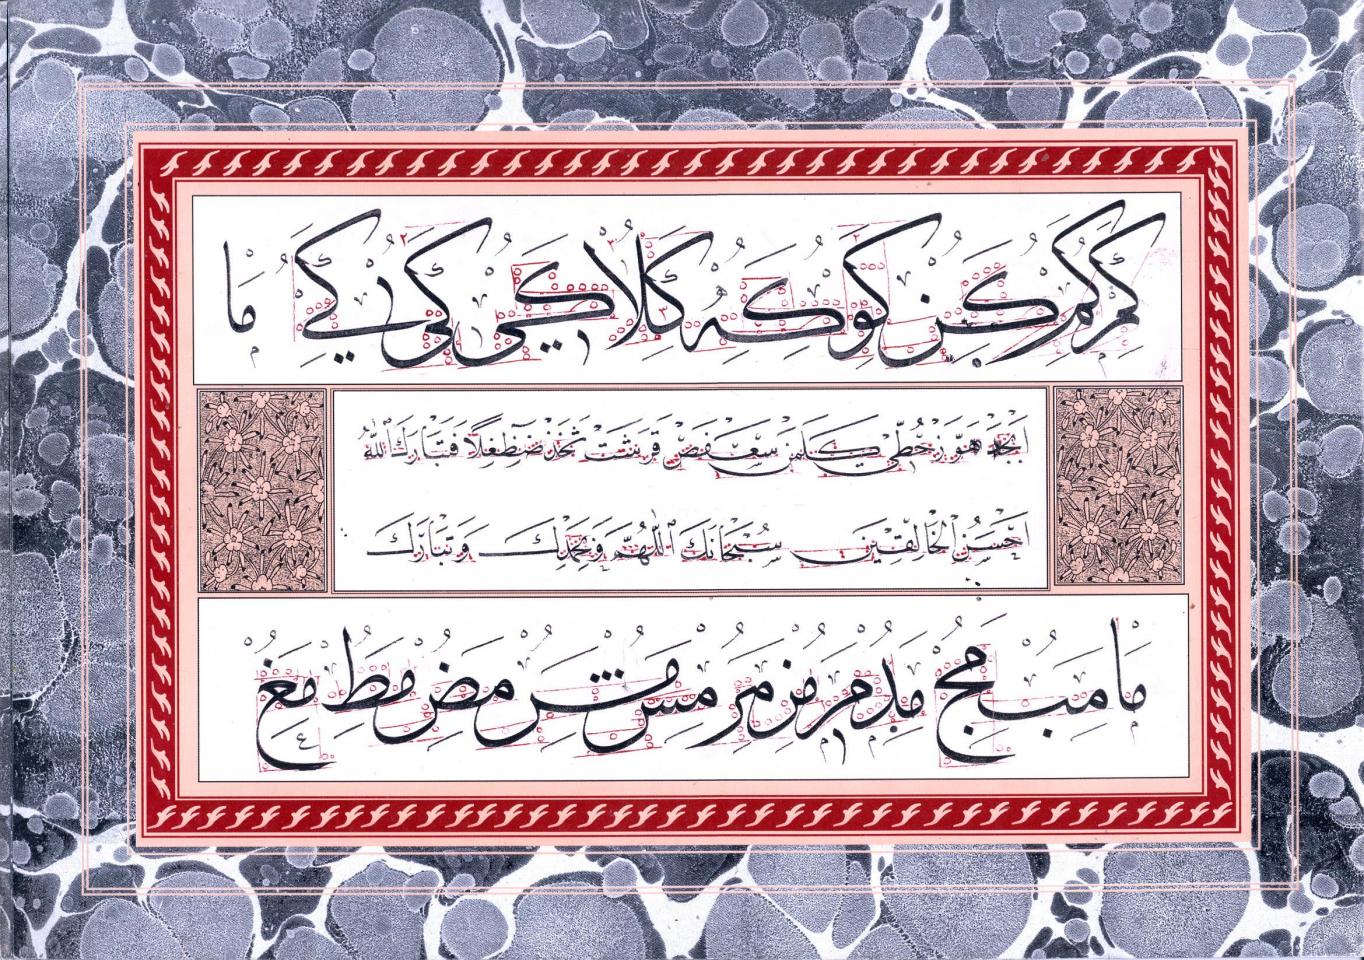 كم كم كن كو كه كلا كي كي كے ما
ابجد هوز حطي كلمن سعفص قرشت ثخذ ضظغلا فتبارك الله
احسن الخالقين سبحانك اللهم وبحمدك وتبارك
ما مب مج مد مر من مر مس مش مض مط مغ